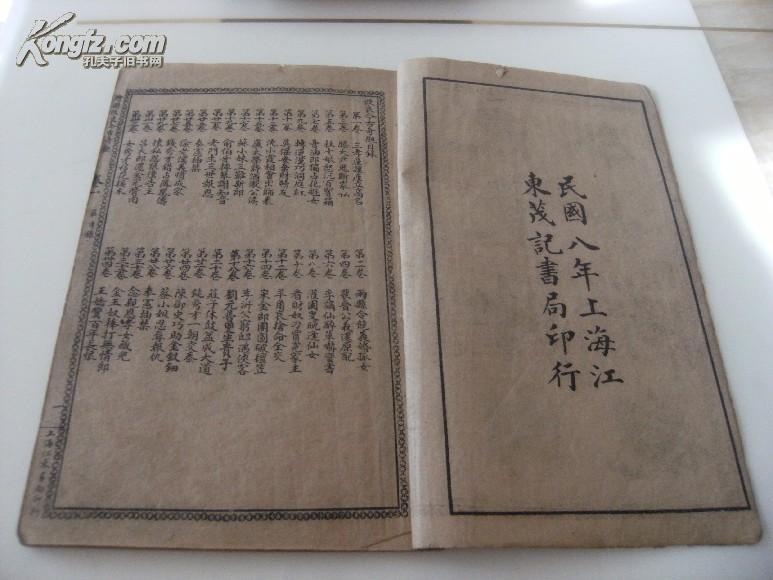 民國八年上海江
東茂記書局印行
改良今古奇觀目錄
第一卷 三孝廉讓產立高名
第二卷 兩縣令競義婚孤女
第三卷 滕大尹鬼斷家私
第四卷 裴晉公義還原配
第五卷 杜十娘怒沉百寶箱
第六卷 李謫仙醉草嚇蠻書
第七卷 賣油郎獨占花魁女
第八卷 灌園叟晚逢仙女
第九卷 轉運漢巧遇洞庭紅
第十卷 看財奴刁買冤家主
第十一卷 吳保安棄財贖友
第十二卷 羊角哀捨命全交
第十三卷 沈小霞相會出師表
第十四卷 宋金郎團圓破氈笠
第十五卷 盧太學詩酒傲公侯
第十六卷 李汧公窮邸遇俠客
第十七卷 蘇小妹三難新郎
第十八卷 劉元普雙生貴子
第十九卷 俞伯牙摔琴謝知音
第二十卷 莊子休鼓盆成大道
第廿一卷 老門生三世報恩
第廿二卷 鈍秀才一朝交泰
第廿三卷 奉憲抽禁
第廿四卷 陳御史巧勘金釵鈿
第廿五卷 徐老僕義憤成家
第廿六卷 蔡小姐忍辱報仇
第廿七卷 錢秀才錯占鳳凰儔
第廿八卷 奉憲抽禁
第廿九卷 懷私怨狠僕告主
第三十卷 念親恩孝女藏兒
呂大郎還金完骨肉
金玉奴棒打無情郎
女秀才移花接木
王嬌鸞百年長恨
卷一
目錄
一
上海江東書局印行
Kongfz.com
孔夫子旧书网